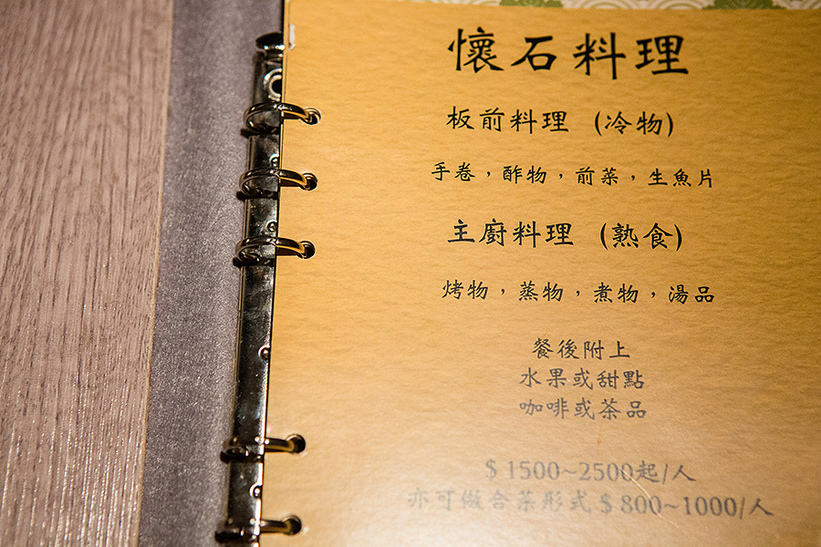 懷石料理
板前料理 (冷物)
手卷，酢物，前菜，生魚片
主廚料理 (熟食)
烤物，蒸物，煮物，湯品
餐後附上
水果或甜點
咖啡或茶品
$1500~2500起/人
亦可做合菜形式$800~1000/人